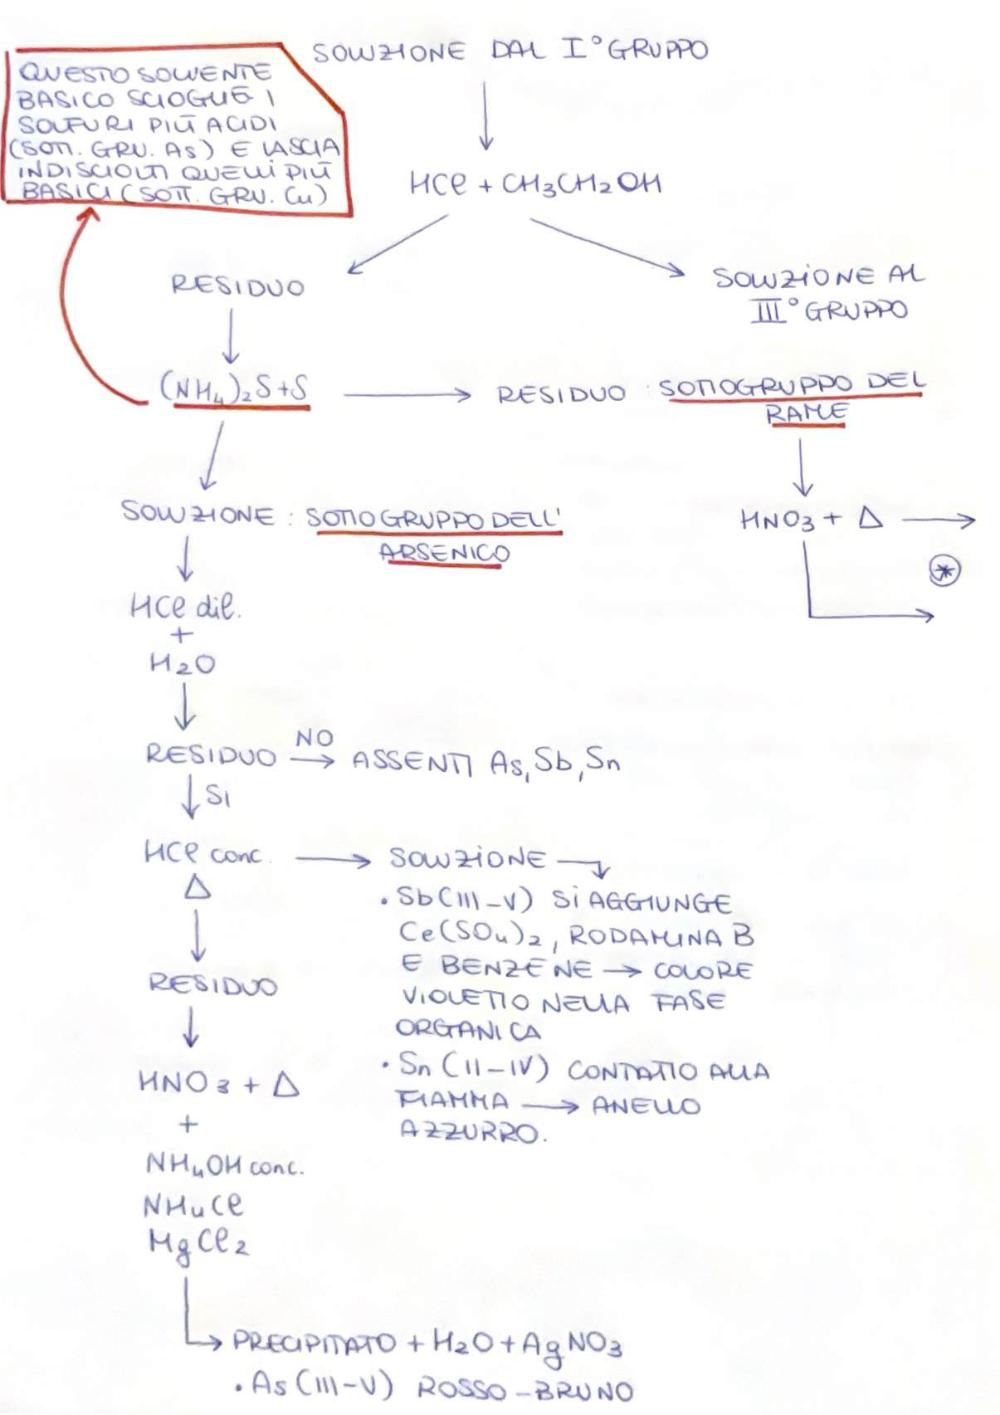 SOLUZIONE DAL I° GRUPPO
QUESTO SOLVENTE
BASICO SCIOGLIE I
SOLFURI PIÙ ACIDI
(SOTT. GRU. As) E LASCIA
INDISCIOLTI QUELLI PIÙ
BASICI (SOTT. GRU. Cu)
HCl + CH3CH2OH
RESIDUO
SOLUZIONE AL
III° GRUPPO
(NH4)2S+S → RESIDUO : SOTTOGRUPPO DEL
RAME
SOLUZIONE : SOTTOGRUPPO DELL'
ARSENICO
HNO3 + Δ →
*
HCl dil.
+
H2O
RESIDUO NO → ASSENTI As, Sb, Sn
↓ SI
HCl conc. → SOLUZIONE
Δ
• Sb (III-V) SI AGGIUNGE
Ce(SO4)2, RODAMINA B
E BENZENE → COLORE
VIOLETTO NELLA FASE
ORGANICA
• Sn (II-IV) CONTATTO ALLA
FIAMMA → ANELLO
AZZURRO.
RESIDUO
HNO3 + Δ
+
NH4OH conc.
NH4Cl
MgCl2
PRECIPITATO + H2O + AgNO3
• As (III-V) ROSSO-BRUNO